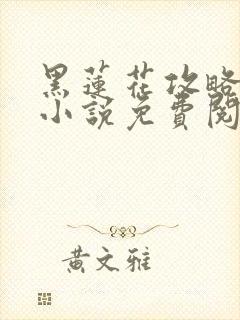 黑蓮花攻略
小說免費閱
黃文雅